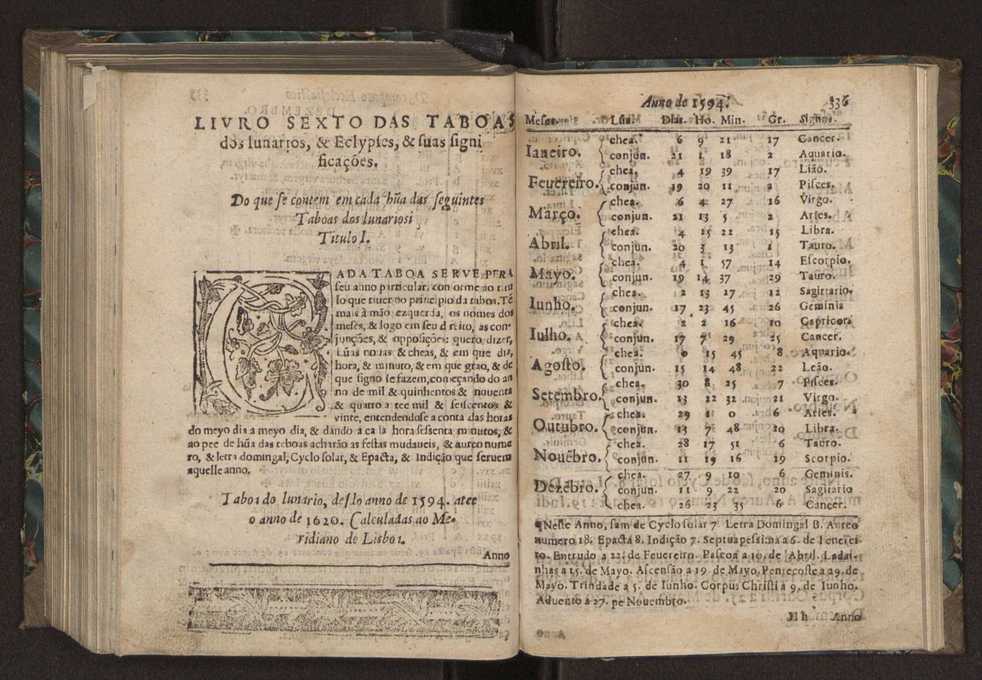 LIVRO SEXTO DAS TABOAS
dos lunarios, & Eclypses, & suas signi
ficações.
Do que se contem em cada hũa das seguintes
Taboas dos lunarios;
Titulo I.
CADA TABOA SERVE PERA
seu anno particular, conforme ao titu
lo que tiuer no principio da taboa. Tẽ
mais à mão ezquerda, os nomes dos
meses, & logo em seu direito, as con
junções, & opposições: quero dizer,
Lũas nouas & cheas, & em que dia,
hora, & minuto, & em que grao, & de
que signo se fazem, começando do an
no de mil & quinhentos & nouenta
& quatro atee mil & seiscentos &
vinte, entendendose a conta das horas
do meyo dia a meyo dia, & dando a cada hora sessenta minutos, &
ao pee de hũa das taboas acharão as festas mudaueis, & aureo nume
ro, & letra domingal, Cyclo solar, & Epacta, & Indição que seruem
aquelle anno.
Taboa do lunario, deslo anno de 1594. atee
o anno de 1620. Calculadas ao Me-
ridiano de Lisboa.
Anno
Anno de 1594. 336
Meses. Lũa. Dias. Ho. Min. Gr. Signos.
Ianeiro. chea. 6 9 21 17 Cancer.
conjũn. 21 1 18 2 Aquario.
Feuereiro. chea. 4 19 39 17 Lião.
conjun. 19 20 11 2 Pisces.
Março. chea. 6 4 27 16 Virgo.
conjun. 21 13 5 2 Aries.
Abril. chea. 4 15 22 15 Libra.
conjun. 20 3 13 1 Tauro.
Mayo. chea. 4 1 57 14 Escorpio.
conjun. 19 14 37 29 Tauro.
Iunho. chea. 2 13 17 12 Sagittario.
conjun. 17 23 45 26 Geminis
Iulho. chea. 2 2 16 10 Capricor
conjun. 17 7 29 25 Cancer.
Agosto. chea. 0 15 45 8 Aquario.
conjun. 15 14 48 22 Leão.
Setembro. chea. 30 8 25 7 Pisces.
conjun. 13 22 32 21 Virgo.
Outubro. chea. 29 1 0 6 Aries.
conjun. 13 7 48 20 Libra.
Nouẽbro. chea. 28 17 51 6 Tauro.
conjun. 11 19 16 19 Scorpio.
Dezẽbro. chea. 27 9 10 6 Geminis.
conjun. 11 9 22 20 Sagitario
chea. 26 23 35 6 Cancer.
¶Neste Anno, sam de Cyclo solar 7. Letra Domingal B. Aureo
numero 18. Epacta 8. Indição 7. Septuagessima a 6. de Feuerei-
ro. Entrudo a 22. de Feuereiro. Pascoa a 10. de Abril. Ladai-
nhas a 15. de Mayo. Ascensão a 19. de Mayo. Pentecoste a 29. de
Mayo. Trindade a 5. de Iunho. Corpus Christi a 9. de Iunho.
Aduento a 27. de Nouembro.
Hh Anno